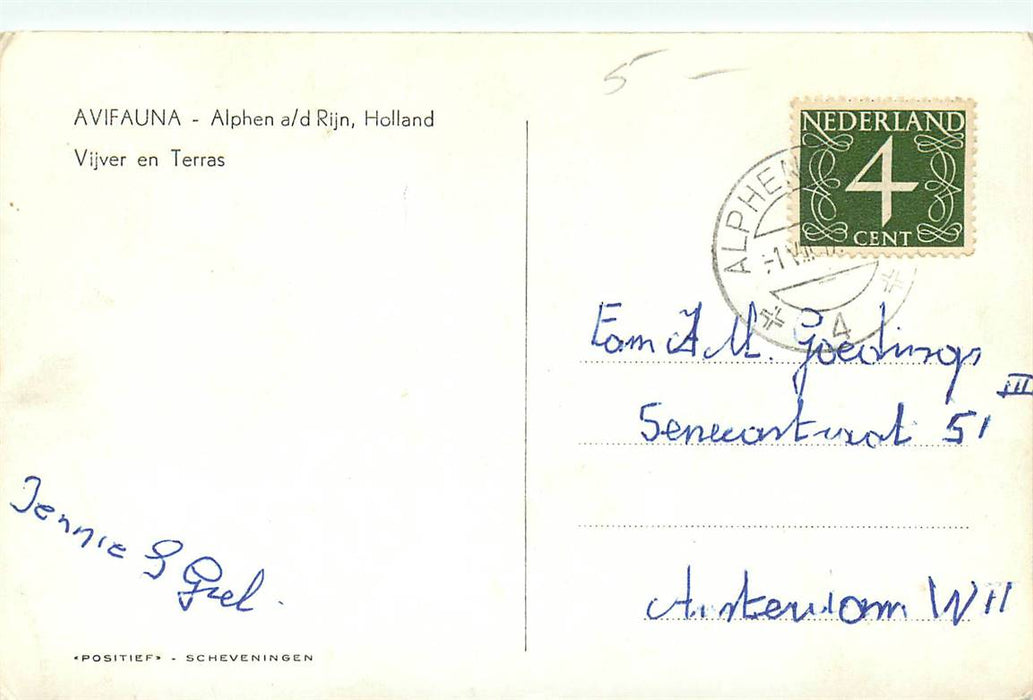 AVIFAUNA - Alphen a/d Rijn, Holland
Vijver en Terras
5 -
NEDERLAND
4
CENT
ALPHEN
4
Fam A M. Goedings
III
Senecastraat 51
Amsterdam W II
Jennie & Gel.
«POSITIEF» - SCHEVENINGEN